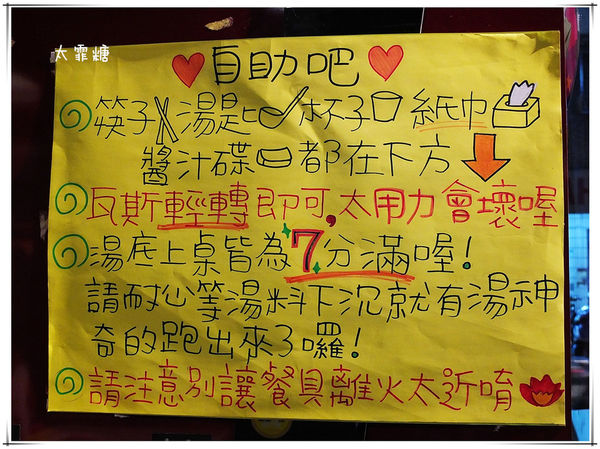 太霏糖
自助吧
筷子湯匙杯子紙巾
醬汁碟都在下方
瓦斯輕轉即可,太用力會壞喔
湯底上桌皆為7分滿喔!
請耐心等湯料下沉就有湯神
奇的跑出來了囉!
請注意別讓餐具離火太近唷